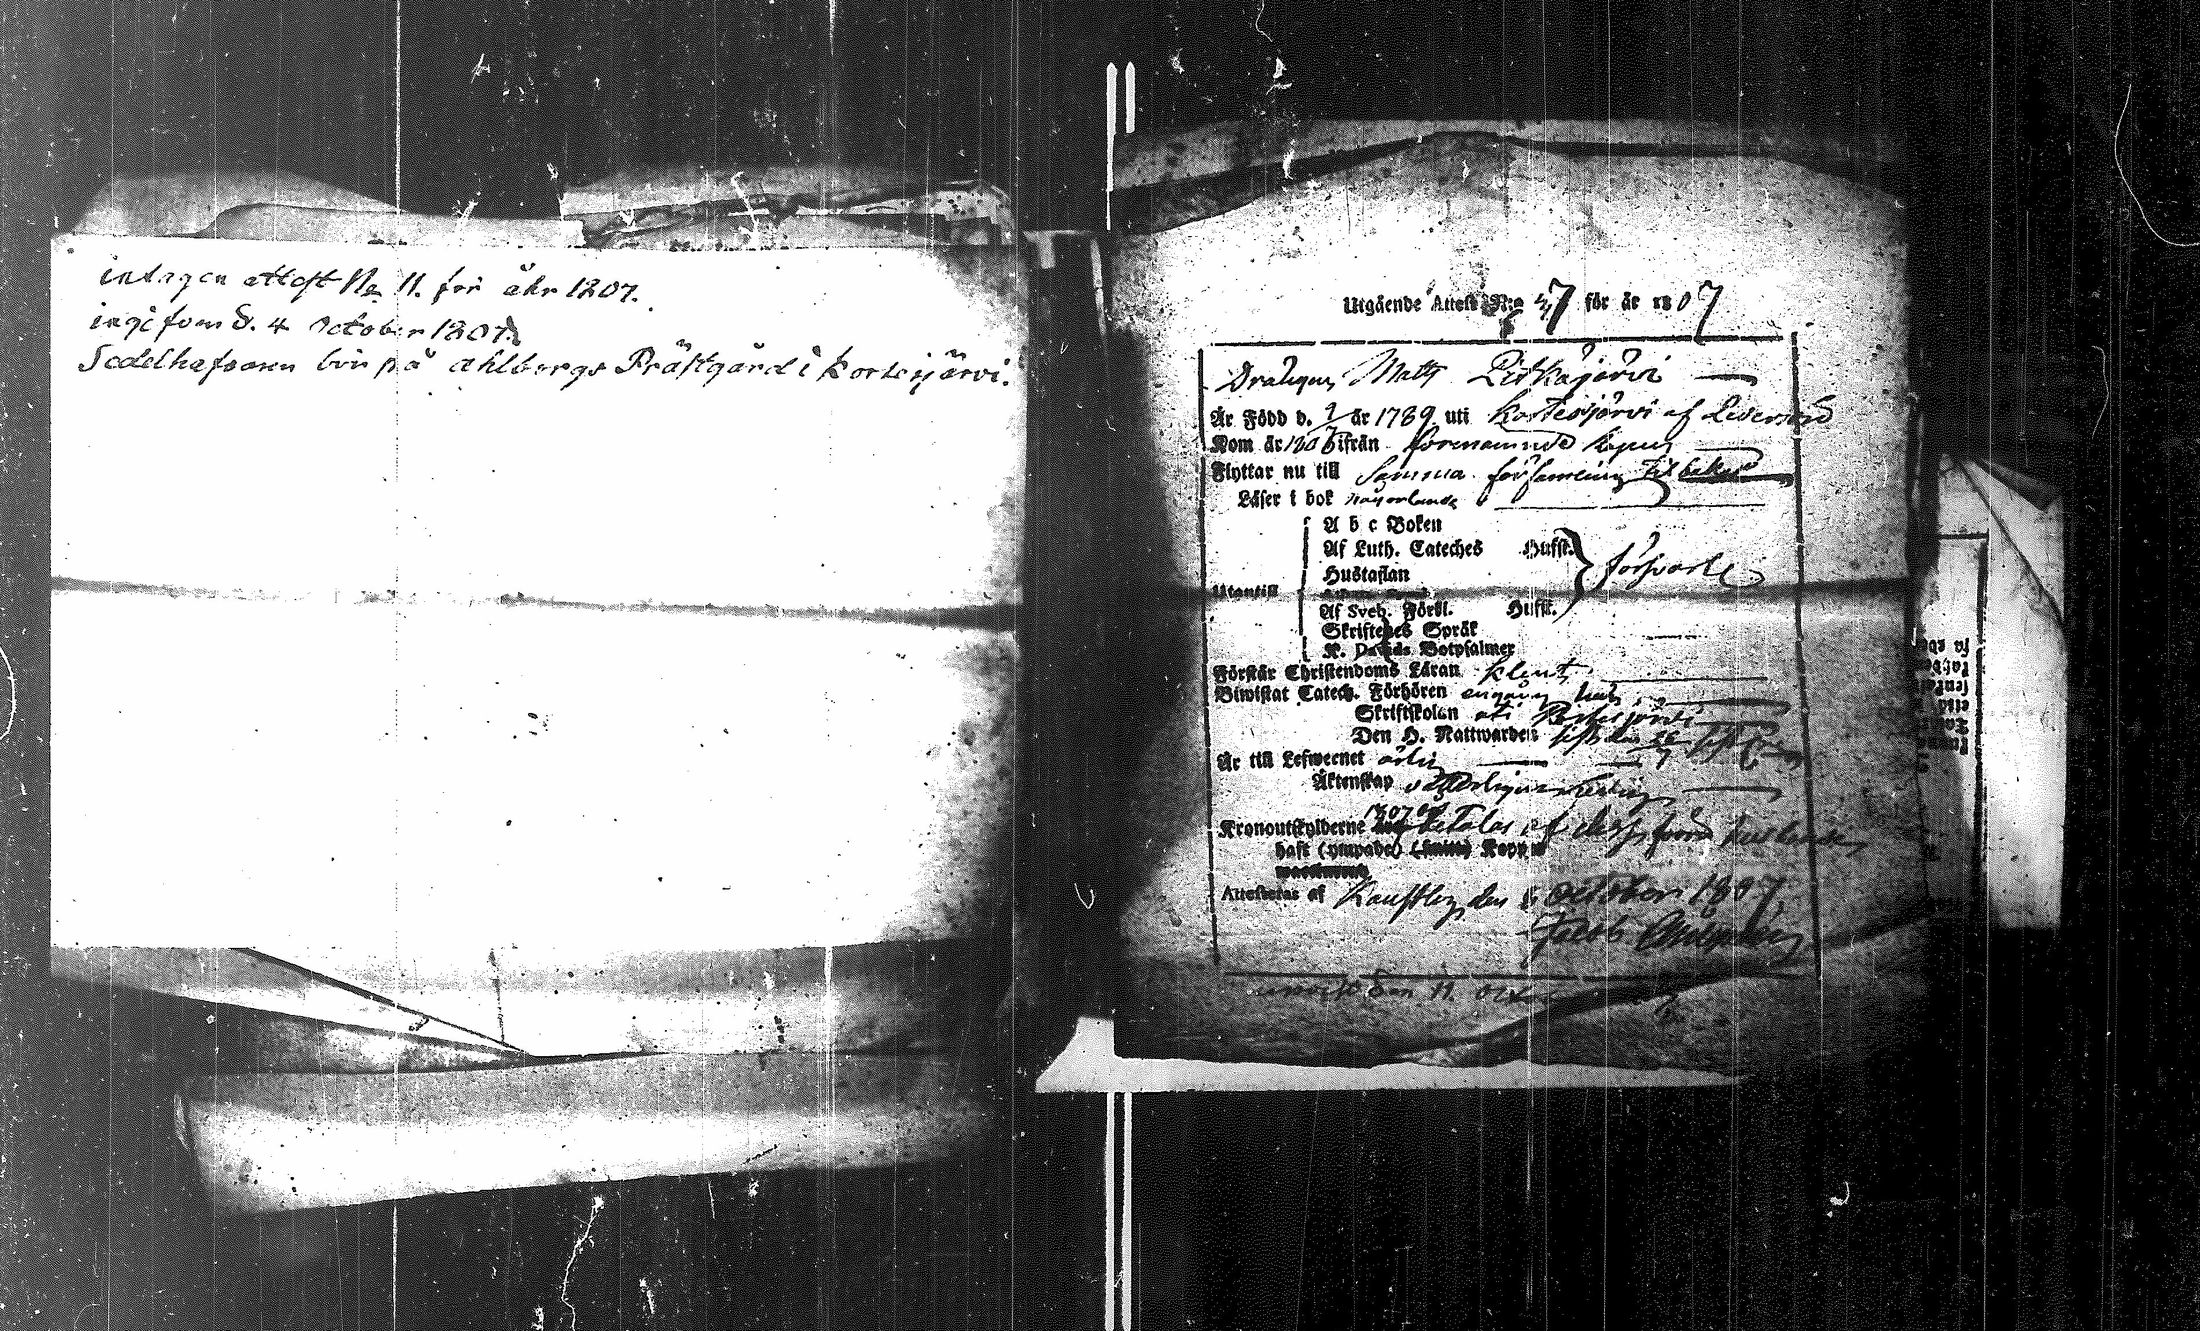 intagen attest No 11. för åhr 1807.
ingifom d. 4 October 1807
Sedelhafvaren bor på ahlborgs Prästgård i Kortesjärvi.
Utgående Attest N:o 47 för år 1807
Drängen Matts Pitkäjärvi
Är Född d. 9/ år 1789 uti Kortesjärvi af
Kom år 1806 ifrån förenämnde
Flyttar nu till Samma församling tilbakas
Läser i bok någorlunda
A b c Boken
Af Luth. Cateches Hufst.
Hustaflan
Utantill
försvarl.
Af Sveb. Förkl. Hufst.
Skriftenes Språk
K. Davids Botpsalmer
Förstår Christendoms Läran klent
Biwistat Catech. Förhören engång här
Skriftskolan uti Kortesjärvi
Den H. Nattwarden sist den
Är till Lefwernet ärlig
Äktenskap
Kronoutskylderne 1807 betalas af dess
haft (ympade) Koppor
Attesteras af Kaustby den 6 October 1807
Jacob
den 11. Octob